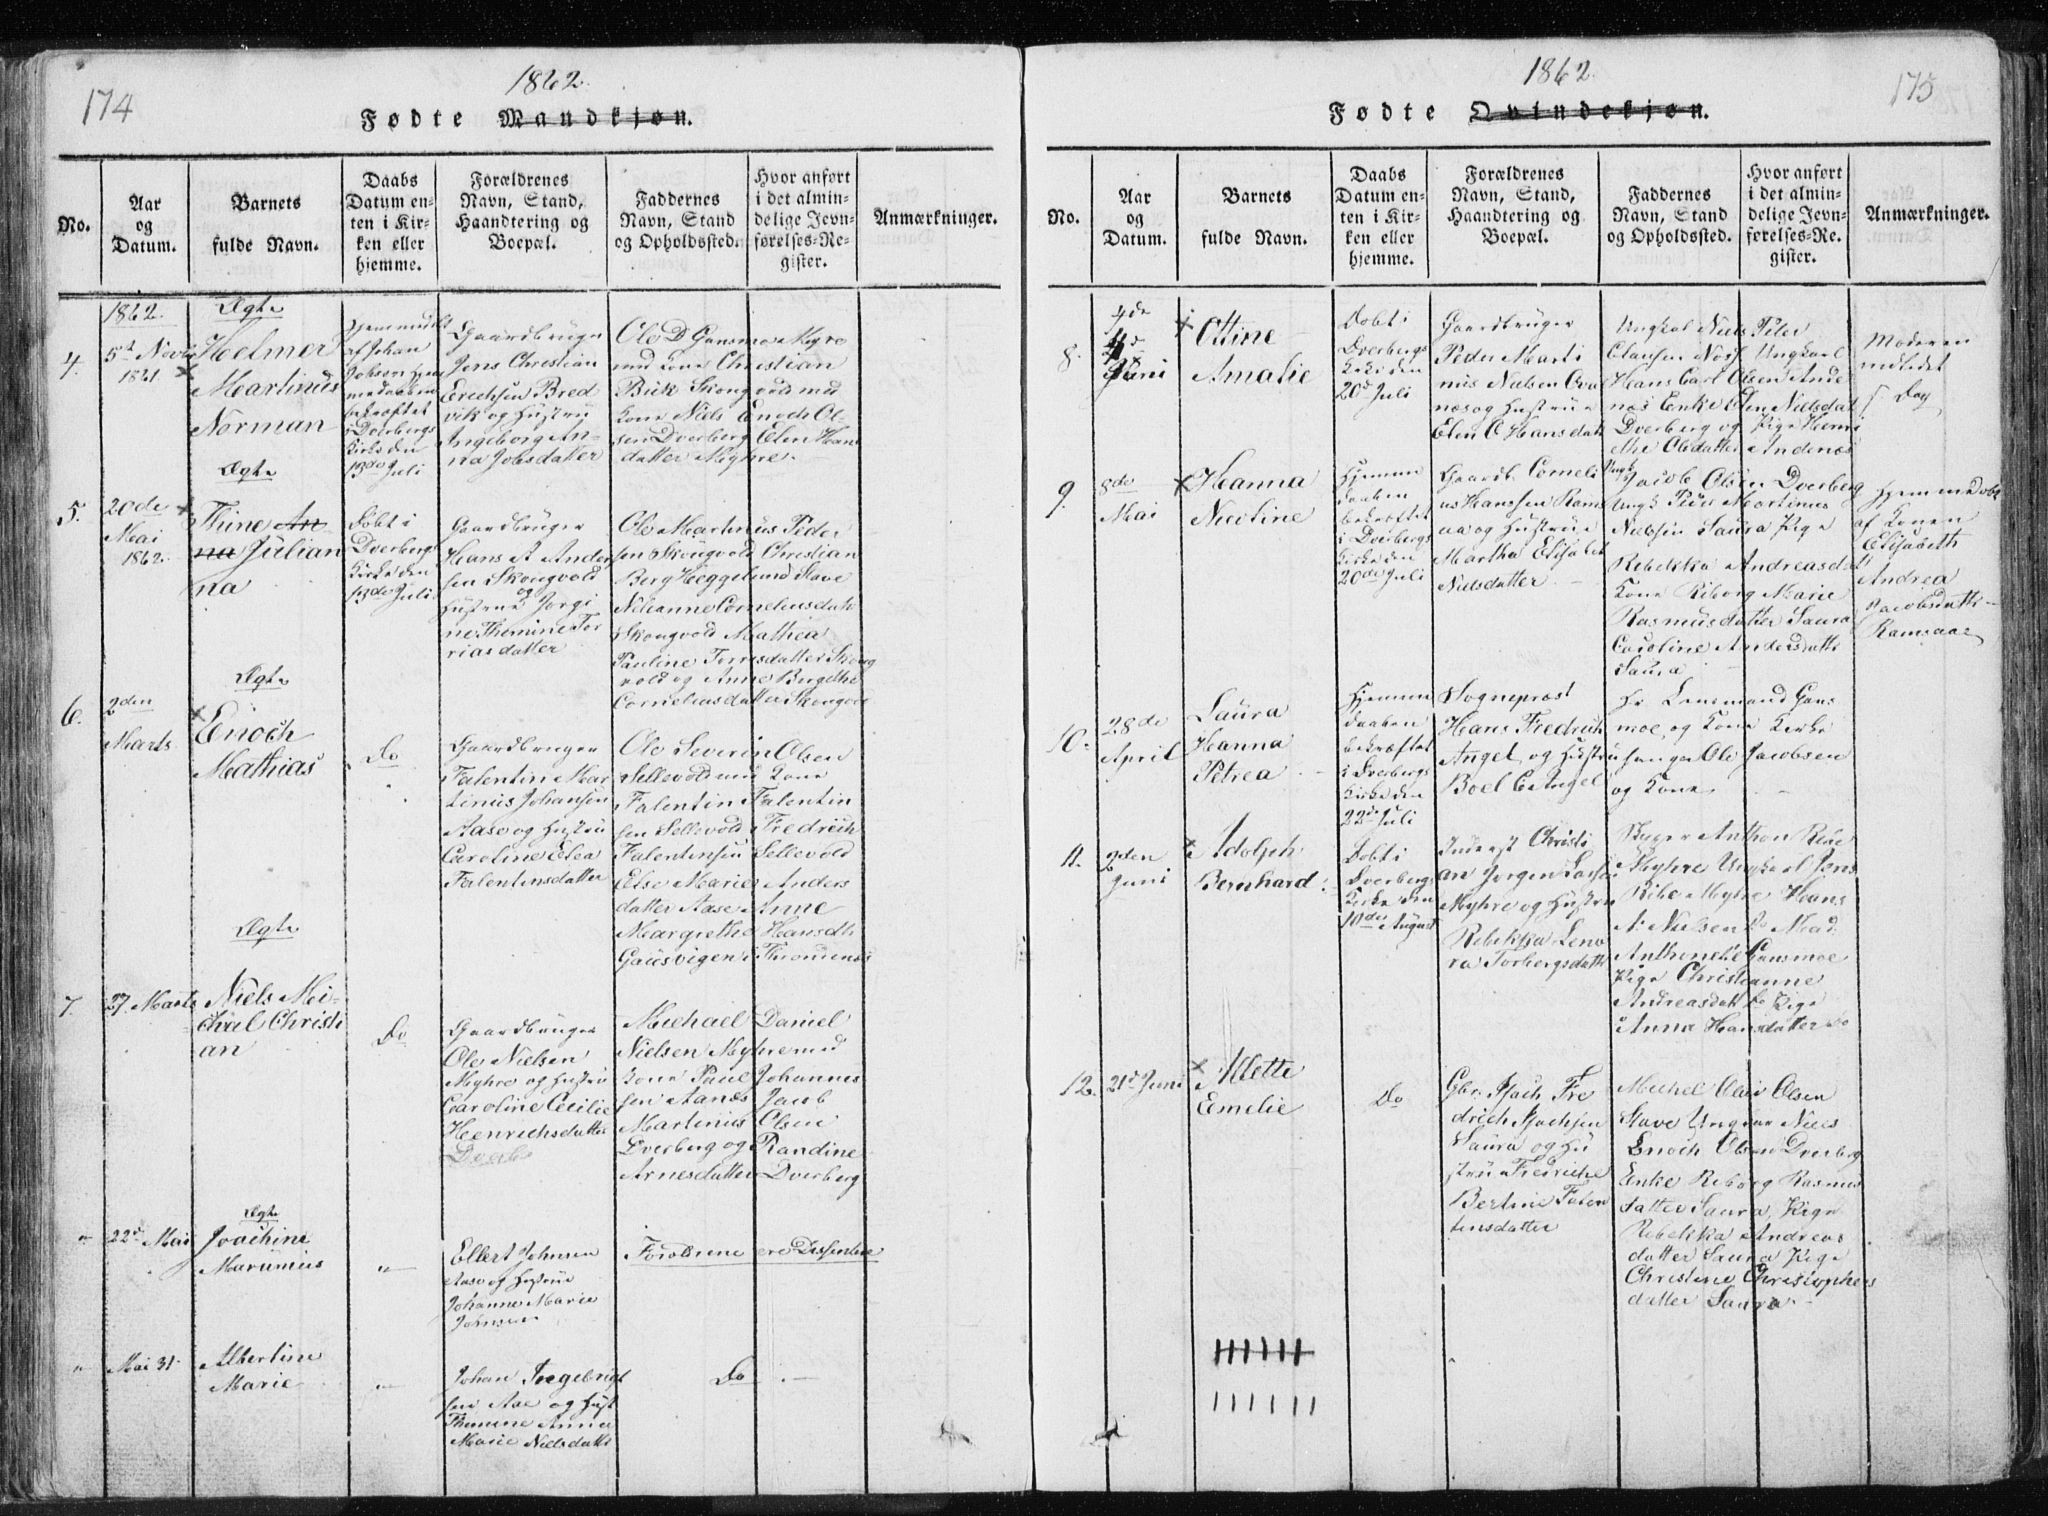 174
1862.
Fødte Mandkjøn.
No.
Aar
og
Datum.
Barnets
fulde Navn.
Daabs
Datum en-
ten i Kir-
ken eller
hjemme.
Forældrenes
Navn, Stand,
Haandtering og
Boepæl.
Faddernes
Navn, Stand
og Opholdssted.
Hvor anført
i det almin-
delige Jevn-
førelses-Re-
gister.
Anmærkninger.
4.
1862.
5t Novbr
1861.
Ægte
Helmer
Martinus
Norman
Hjemmedøbt
af Johan
Jobsen
bekræftet
i Dverbergs
Kirke den
13de Juli
Gaardbruger
Jens Christian
Erichsen Bred
vik og Hustru
Ingeborg An-
na Jobsdatter
Ole D Gansmo Myre
med Kone Christian
Bick Skongvold med
Kone Niels Enoch Ol-
sen Dverberg Elen Hans
datter Myhre.
5.
20de
Mai
1862.
Ægte
Thine An
na Julian
na
Døbt i
Dverbergs
Kirke den
13de Juli
Gaardbruger
Hans A Ander
sen Skongvold
og
Hustrue Jørgi
ne Themine Tor
riasdatter
Ole Martinus Peder
sen Skongvold Christian
Berg Heggelund Stave
Nileanne Corneliusdatt
Skongvold Mathea
Pauline Torresdatter Skong
vold og Anne Bergithe
Corneliusdatter Skongvold
6.
2den
Marts
Ægte
Enoch
Mathias
Do
Gaardbruger
Falentin Mar
tinus Johansen
Aase og Hustru
Caroline Elea
Falentinsdatter
Ole Severin Olsen
Sellevold med Kone
Falentin Falentin
sen Sellevold Fredrich
Falentinsen Sellevold
Else Marie Anders
datter Aase Anne
Margrethe Hansdtt
Gausvigen i Throndenæs
7.
27 Marts
Ægte
Niels Mi-
chal Christi
an
Do
Gaardbruger
Ole Nielsen
Myhre og Hustru
Caroline Cecilie
Henrichsdatter
Michael Daniel
Nielsen Myhre med
Kone Paul Johannes
sen Aanæs Jacob
Martinus Olsen
Dverberg og Randine
Arnesdatter Dverberg
"
22de Mai
Ægte
Joachine
Marinius
"
Ellert Johnsen
Aase og Hustrue
Johanne Marie
Johnsen
Forældrene ere Dissentere
"
Mai 31
Albertine
Marie
"
Johan Ingebrigt
sen Aae og Hust
Themine Anna
Marie Nielsdatt
Do
175
1862.
Fødte Qvindekjøn.
No.
Aar
og
Datum.
Barnets
fulde Navn.
Daabs
Datum en-
ten i Kir-
ken eller
hjemme.
Forældrenes
Navn, Stand,
Haandtering og
Boepæl.
Faddernes
Navn, Stand
og Opholdssted.
Hvor anført
i det almin-
delige Jevn-
førelses-Re-
gister.
Anmærkninger.
8.
4de
Juni
Ottine
Amalie
Døbt i
Dverbergs
Kirke den
20de Juli
Gaardbruger
Peder Marti
nus Nielsen
næs og Hustrue
Elen O Hansdatt
Ungkal Niels Peder
Clausen Nøss Ungkarl
Hans Carl Olsen Ande
næs Enke Elen Nielsdat
Dverberg og Pige Henri
ethe Olsdatter Andenæs
Moderen
indledet
s Dag
9.
8de
Mai
Hanna
Nicoline
Hjemme
daaben
bekræftet
i Dverbergs
Kirke den
20de Juli
Gaardb. Corneli
us Hanssen Rams
aa og Hustrue
Martha Elisabet
Nielsdatter
Ungk Jacob Olsen Dverberg
Ungk Peder Martinus
Nielsen Saura Pige
Rebekka Andreasdatt
Kone Riborg Marie
Rasmusdatter Saura
Caroline Andersdatter
Saura
Hjemmedøbt
af Konen
Elisabeth
Andrea
Jacobsdatter
Ramsaae
10.
28de
April
Laura
Hanna
Petrea
Hjemme
daaben
bekræftet
i Dverbergs
Kirke den
22de Juli
Sognepræst
Hans Fredrich
Angel og Hustru
Boel C Angel
Hr Lensmand Gans
moe, og Kone Kirke
sanger Ole Jacobsen
og Kone
11.
2den
Juni
Adolph
Bernhard
Døbt i
Dverbergs
Kirke den
10de August
Inderst Christi
an Jørgen Larsen
Myhre og Hustru
Rebekka Leno
ra Torbergsdatt
Anthon Ribe
Myhre Ungkarl Jens
Ribe Myhre Hans
A. Nielsen Do Mad.
Anthonete Gansmoe
Pige Christianne
Andreasdatt Do Pige
Anna Hansdatter Do
12.
21de Juni
Alette
Emelie
Do
Gbr. Isach Fre
drich Isachsen
Saura og Hu
strue Fredriche
Bertine Falen
tinsdatter
Michel Olai Olsen
Stave Ungkar Niels
Enoch Olsen Dverberg
Enke Riborg Rasmus
datter Saura, Pige
Rebekka Andreas
datter Saura Pige
Christine Christophers
datter Saura